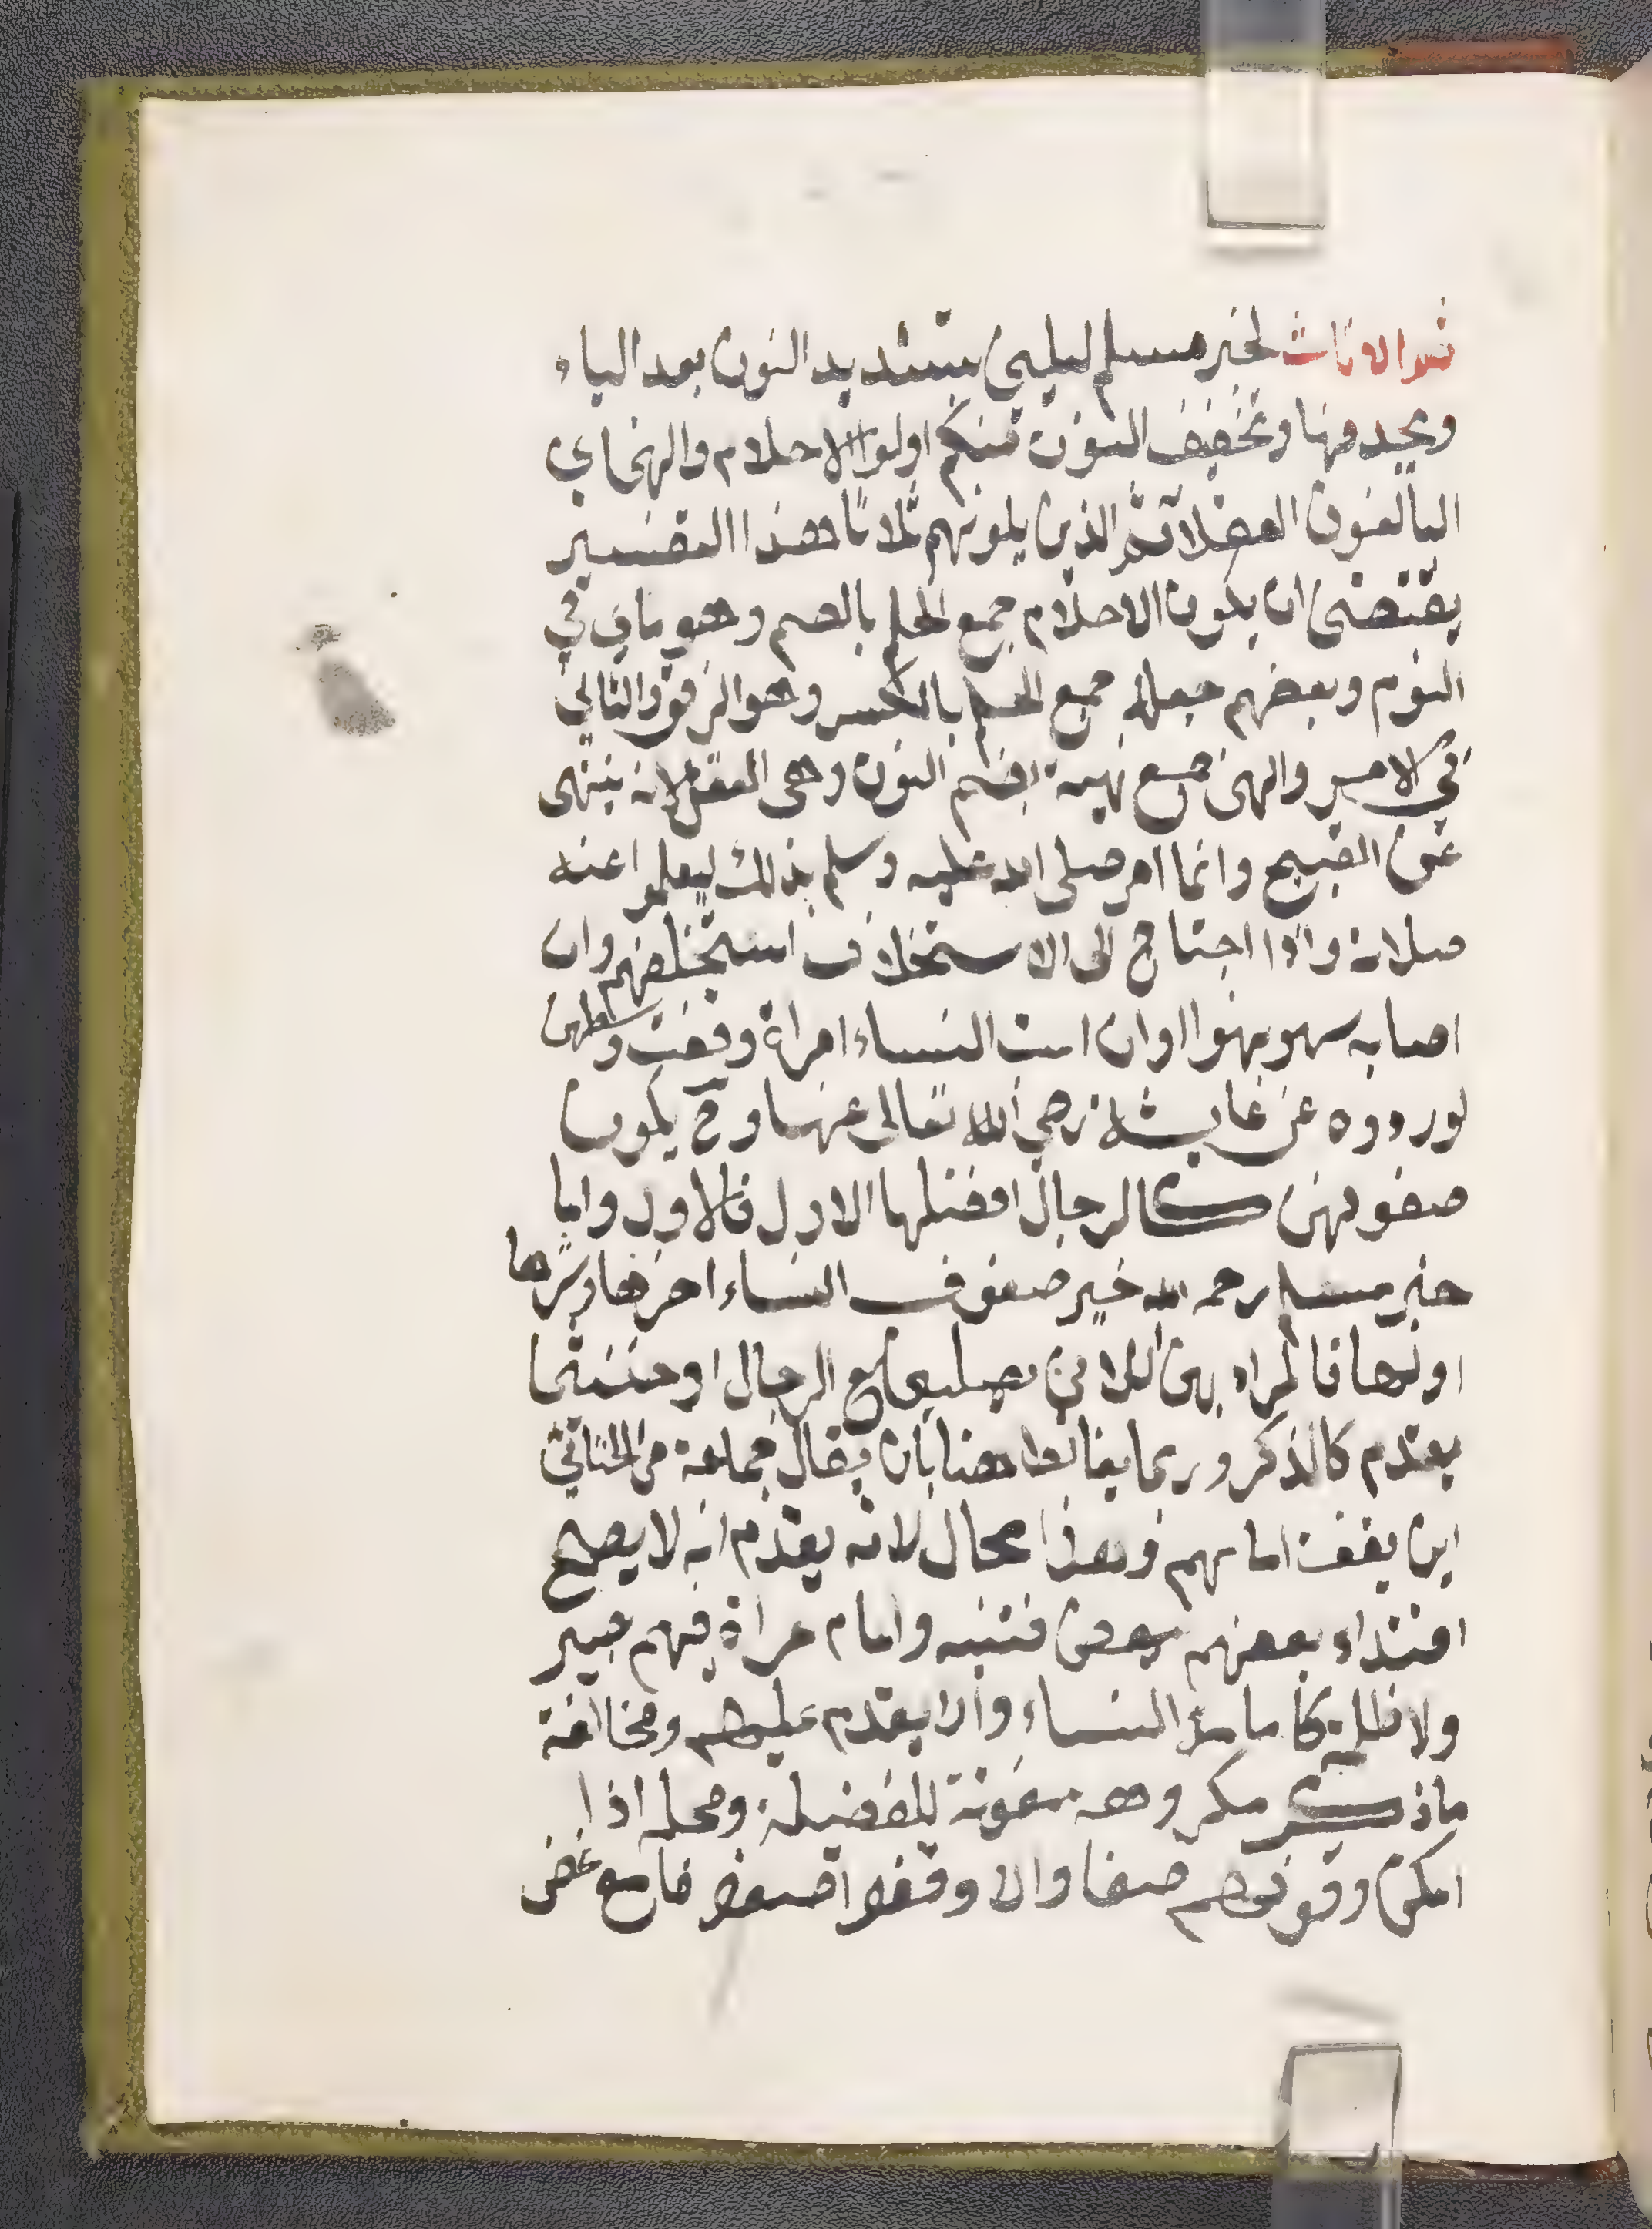 ثم الاناث لخبر مسلم ليليني بتشديد النون بعد الياء
وبحدفها وتخفيف النون منكم اولوا الاحلام والنهى اي
البالغون العقلا ثم الذين يلونهم ثلاثا هذا التفسير
يقتضى ان يكون الاحلام جمع الحلم بالضم وهو ماير في
النوم وبعضهم جعله جمع الحلم بالكسر وهو الرفق والتاني
في الامر والنهى جمع نهية بضم النون وهى العقل لانه ينهى
عن القبيح وانما امر صلى الله عليه وسلم بذلك ليعلموا عنه
صلاته واذا احتاج الى الاستخلاف استخلفهم وان
اصابه سهو نبهوا وان امت النساء امراة وقفت وسطهن
لوروده عن عايشة رضي الله تعالى عنها وح يكون
صفوفهن كالرجال افضلها الاول فالاول واما
خبر مسلم رحمه الله خير صفوف النساء اخرها وشرها
اولها فالمراد بهن اللاتي يصلين مع الرجال او خنثى
يقدم كالذكر وربما يغالط هنا بان يقال جماعة من الخناثى
اين يقف امامهم وهذا محال لانه يقدم انه لا يصح
اقتداء بعضهم ببعض فتنبه وامام عراة فيهم بصير
ولا ظلمة كامامة النساء والا يقدم عليهم ومخالفة
ماذكر مكروهه مفوتة للفضيلة ومحله اذا
امكن وقوفهم صفا والا وقفوا صفوفا مع غض